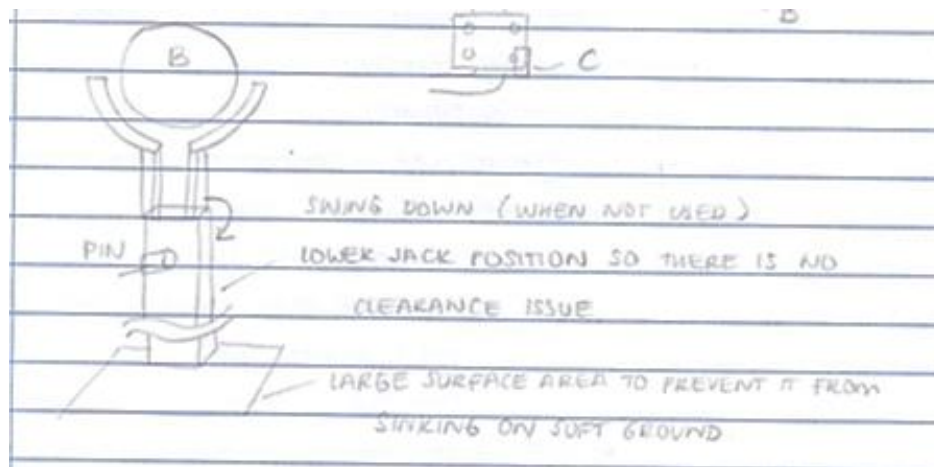 B
C
SWING DOWN (WHEN NOT USED)
PIN
LOWER JACK POSITION SO THERE IS NO
CLEARANCE ISSUE
LARGE SURFACE AREA TO PREVENT IT FROM
SINKING ON SOFT GROUND